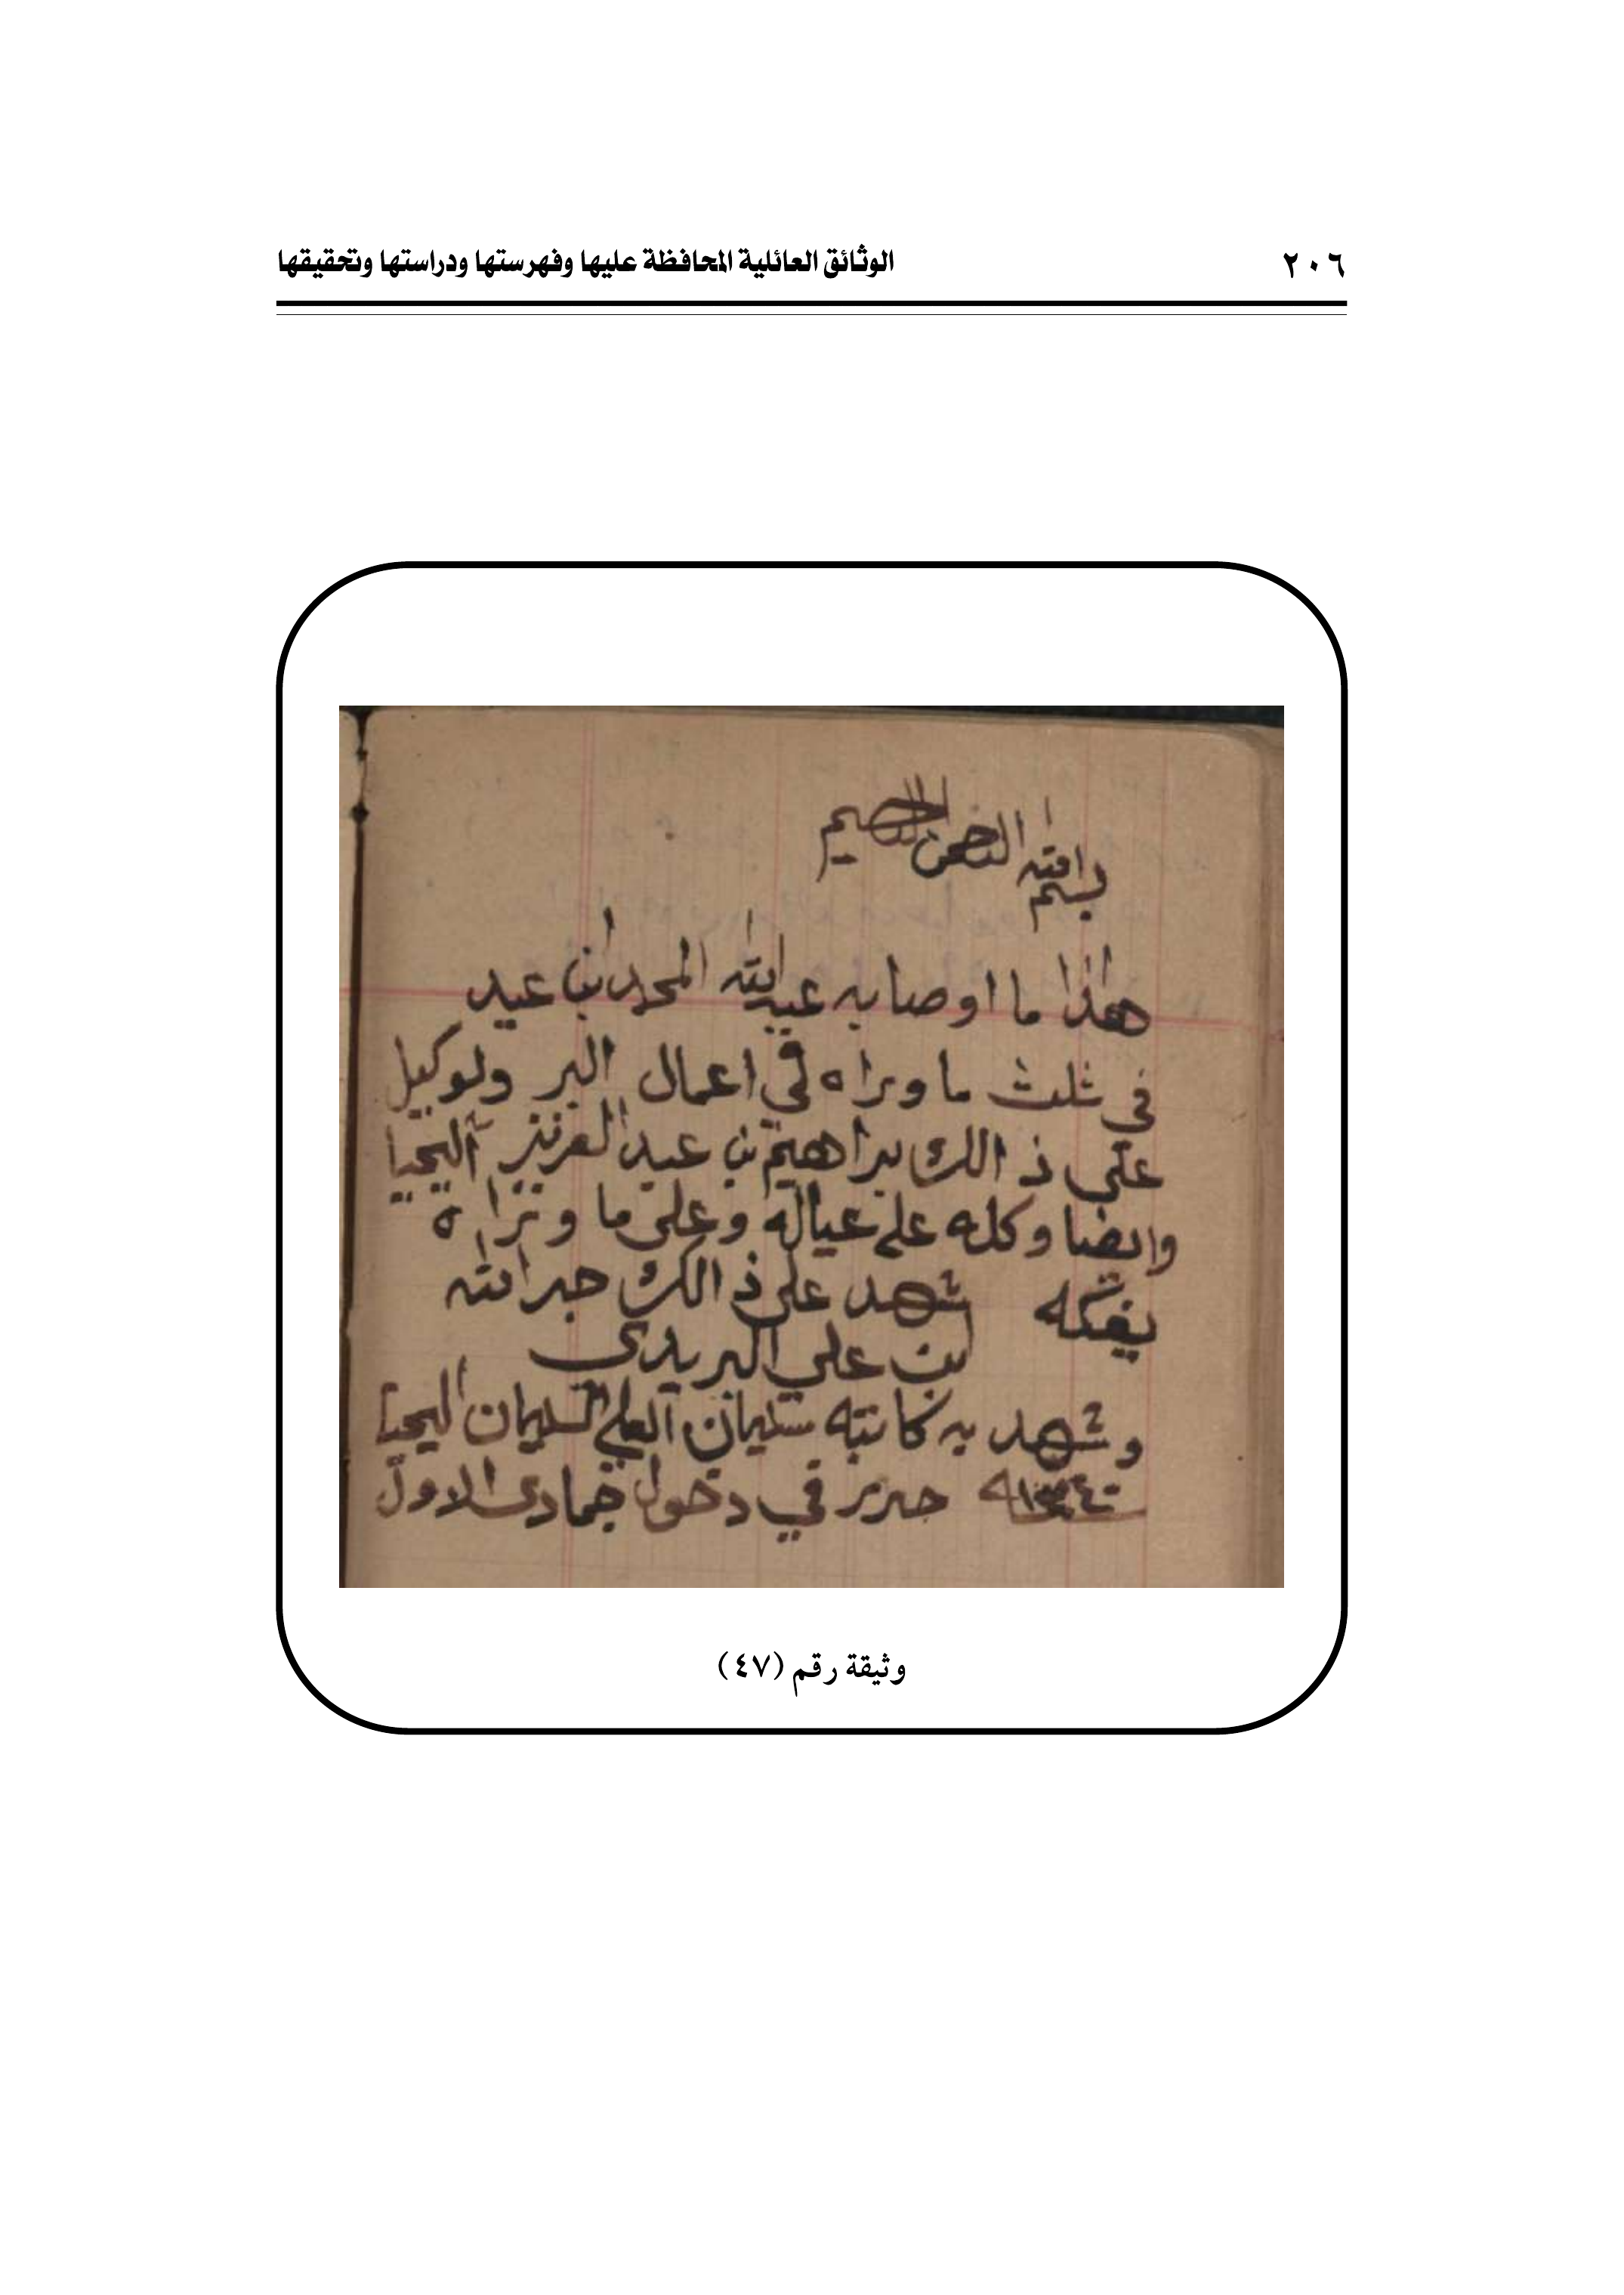 ٢٠٦ الوثائق العائلية المحافظة عليها وفهرستها ودراستها وتحقيقها
بسم الله الرحمن الرحيم
هاذا ما اوصا به عبدالله المحمد بن عيد
في ثلث ما وراه في اعمال البر ولوكيل
على ذالك براهيم بن عبدالعزيز اليحيا
وايضا وكله على عياله وعلى ما وراه
شهد على ذالك جبرالله
ابن علي البريدي
وشهد به كاتبه سليمان العلي السليمان اليحيا
حرر في دخول جمادى الاول
وثيقة رقم (٤٧)